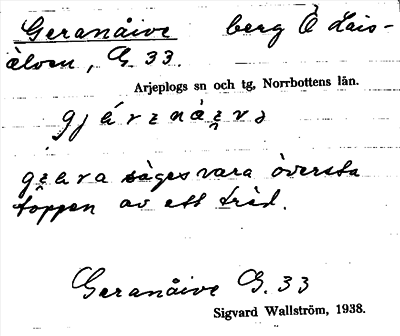 Geranåive berg Ö Lais-
älven, G. 33.
Arjeplogs sn och tg, Norrbottens län.
gjärrenåẹvə
säges vara översta
toppen av ett träd.
Geranåive G. 33
Sigvard Wallström, 1938.